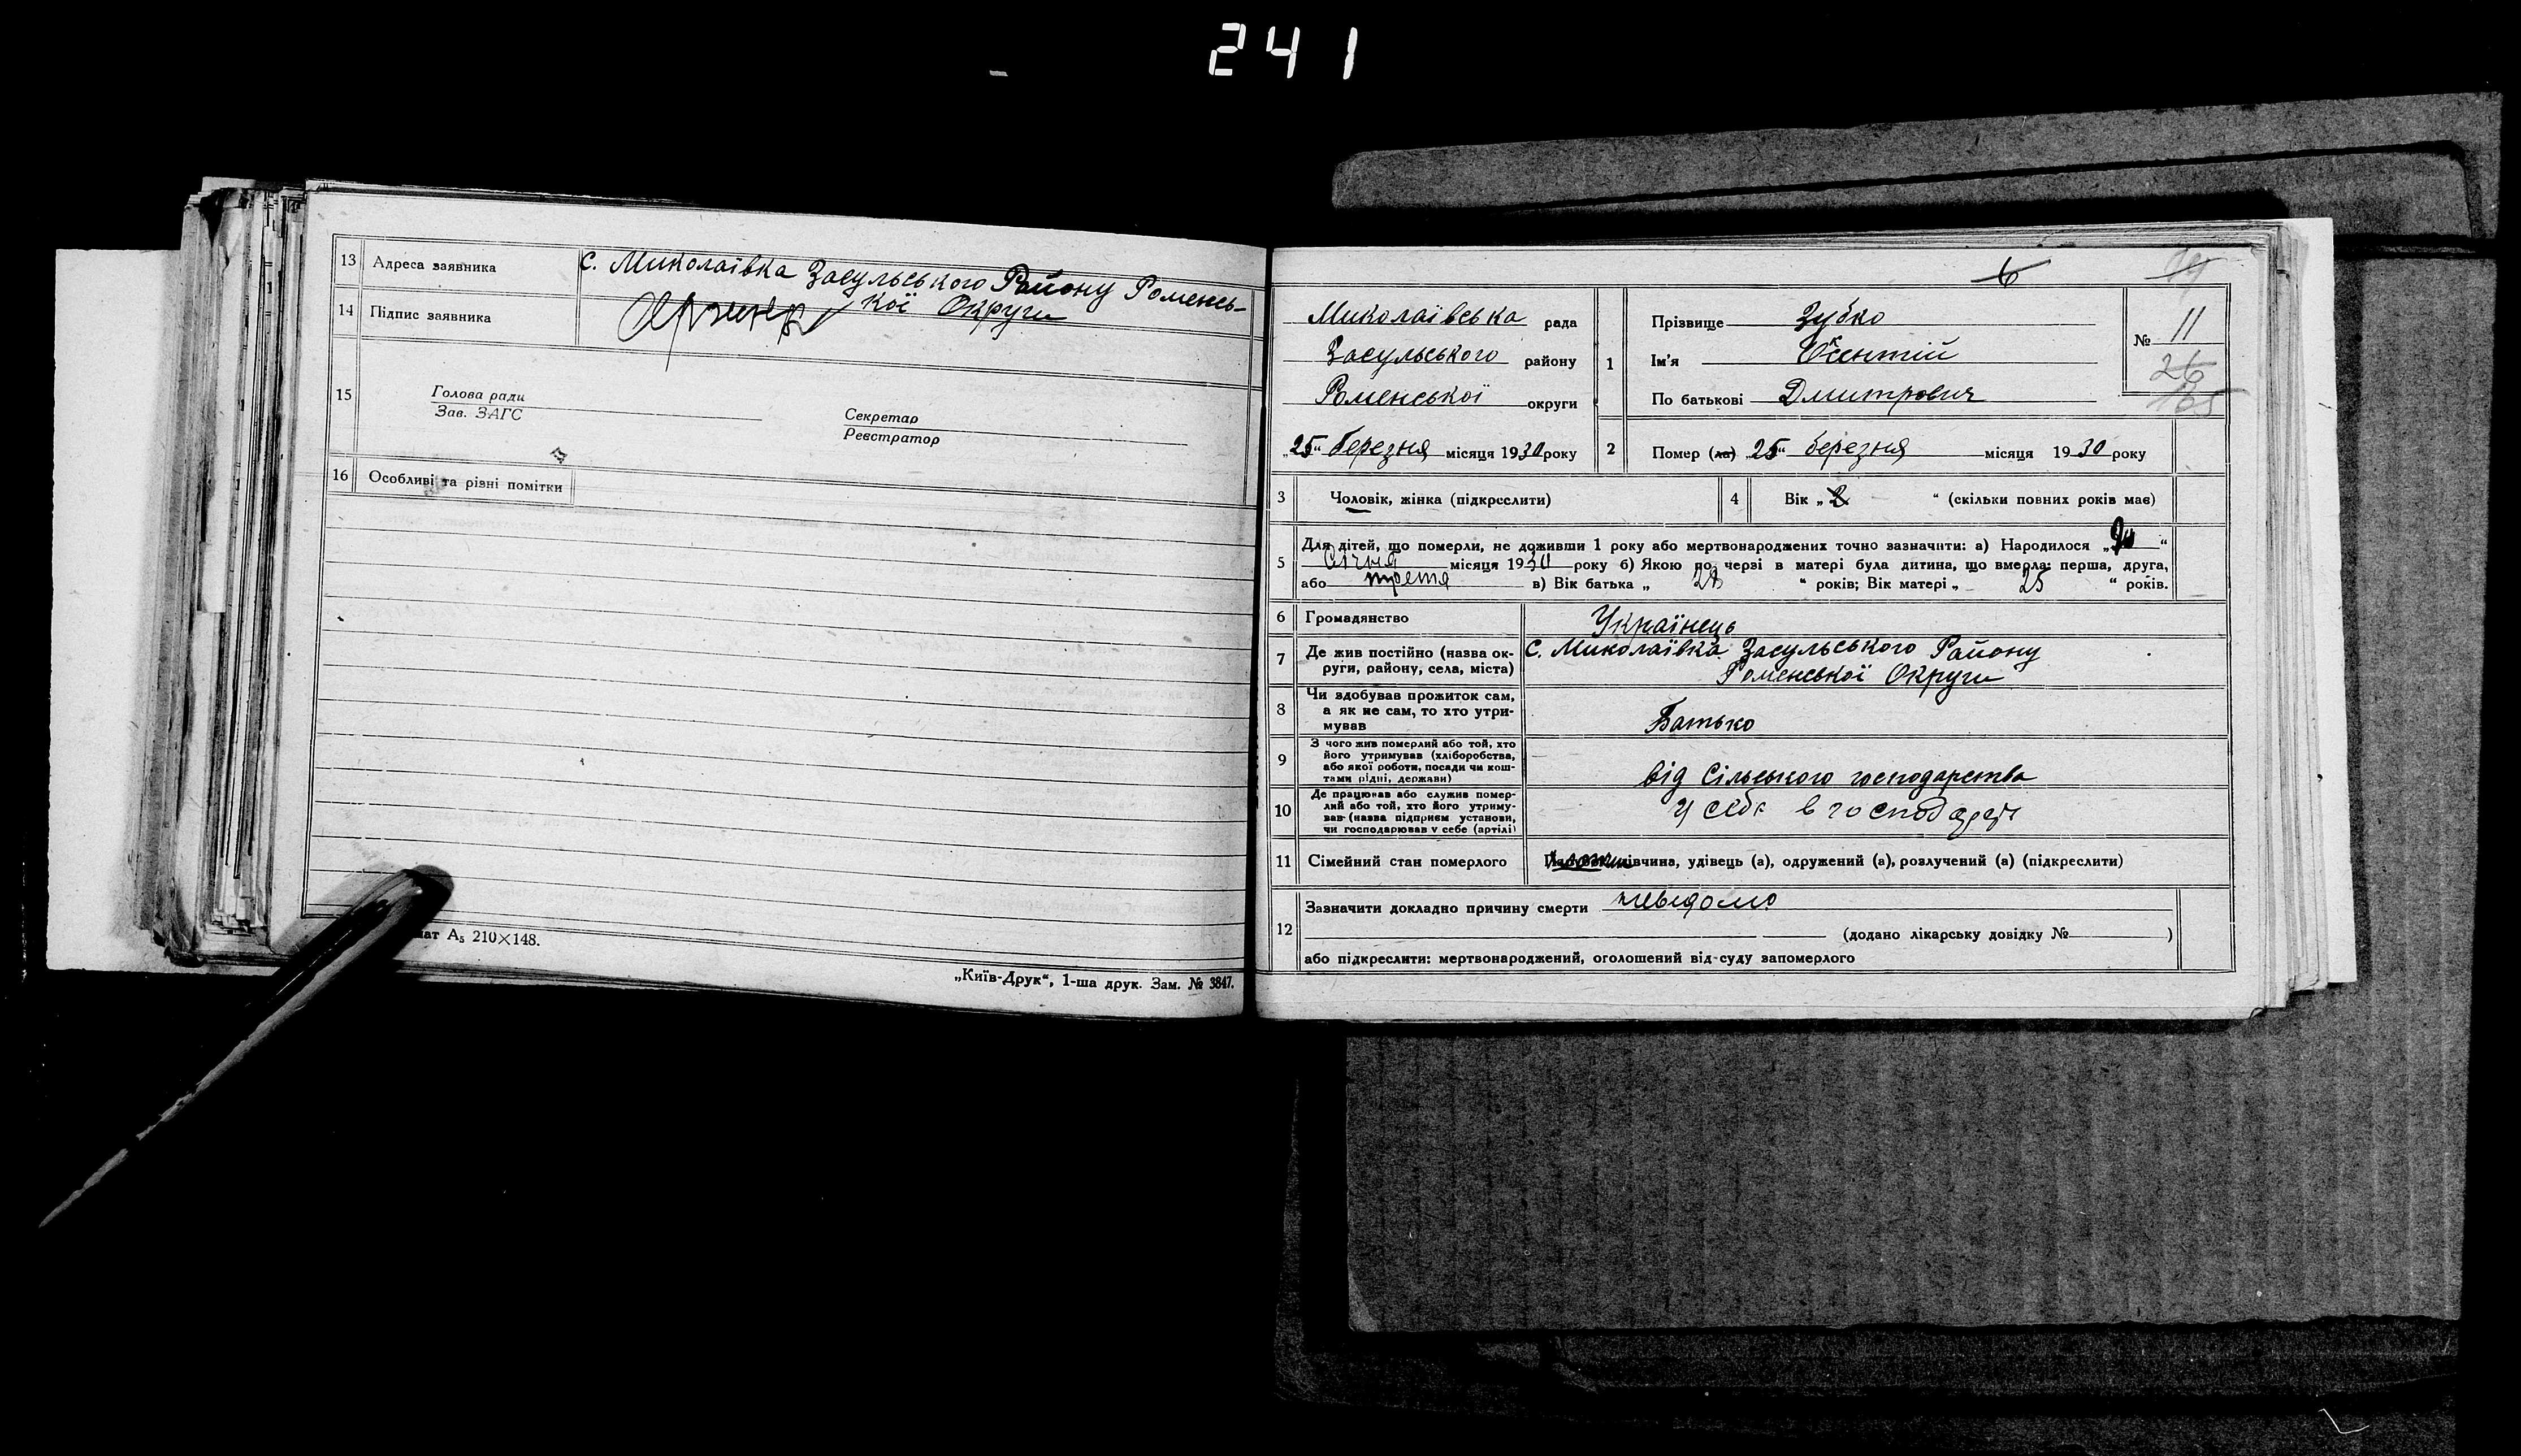 241
13 Адреса заявника с. Миколаівка Засульського Району Роменсь-
кої Округи
14 Підпис заявника
15 Голова ради
Зав. ЗАГС
Секретар
Реєстратор
16 Особливі та різні помітки
ат А₅ 210×148.
„Київ-Друк“, 1-ша друк. Зам. № 3847.
6
Миколаівська рада
Засульського району
Роменської округи
„25“ березня місяця 1930 року
1 Прізвище Зубко
Ім'я
По батькові Дмитрович
№ 11
26
2 Помер (ла) „25“ березня місяця 1930 року
3 Чоловік, жінка (підкреслити)
4 Вік „2“ (скільки повних років має)
5 Для дітей, що померли, не доживши 1 року або мертвонароджених точно зазначити: а) Народилося „ “
Січня місяця 1930 року б) Якою по черзі в матері була дитина, що вмерла: перша, друга,
або третя в) Вік батька „28“ років; Вік матері „25“ років.
6 Громадянство Українець
7 Де жив постійно (назва ок-
руги, району, села, міста)
С. Миколаївка Засульського Району
Роменської Округи
8 Чи здобував прожиток сам,
а як не сам, то хто утри-
мував
Батько
9 З чого жив померлий або той, хто
його утримував (хліборобства,
або якої роботи, посади чи кош-
тами рідні, держави)
від Сільського господарства
10 Де працював або служив помер-
лий або той, хто його утриму-
вав (назва підприєм установи,
чи господарював у себе (артілі)
у себе в господарст
11 Сімейний стан померлого дівчина, удівець (а), одружений (а), розлучений (а) (підкреслити)
12 Зазначити докладно причину смерти невідомо
(додано лікарську довідку № )
або підкреслити: мертвонароджений, оголошений від суду запомерлого